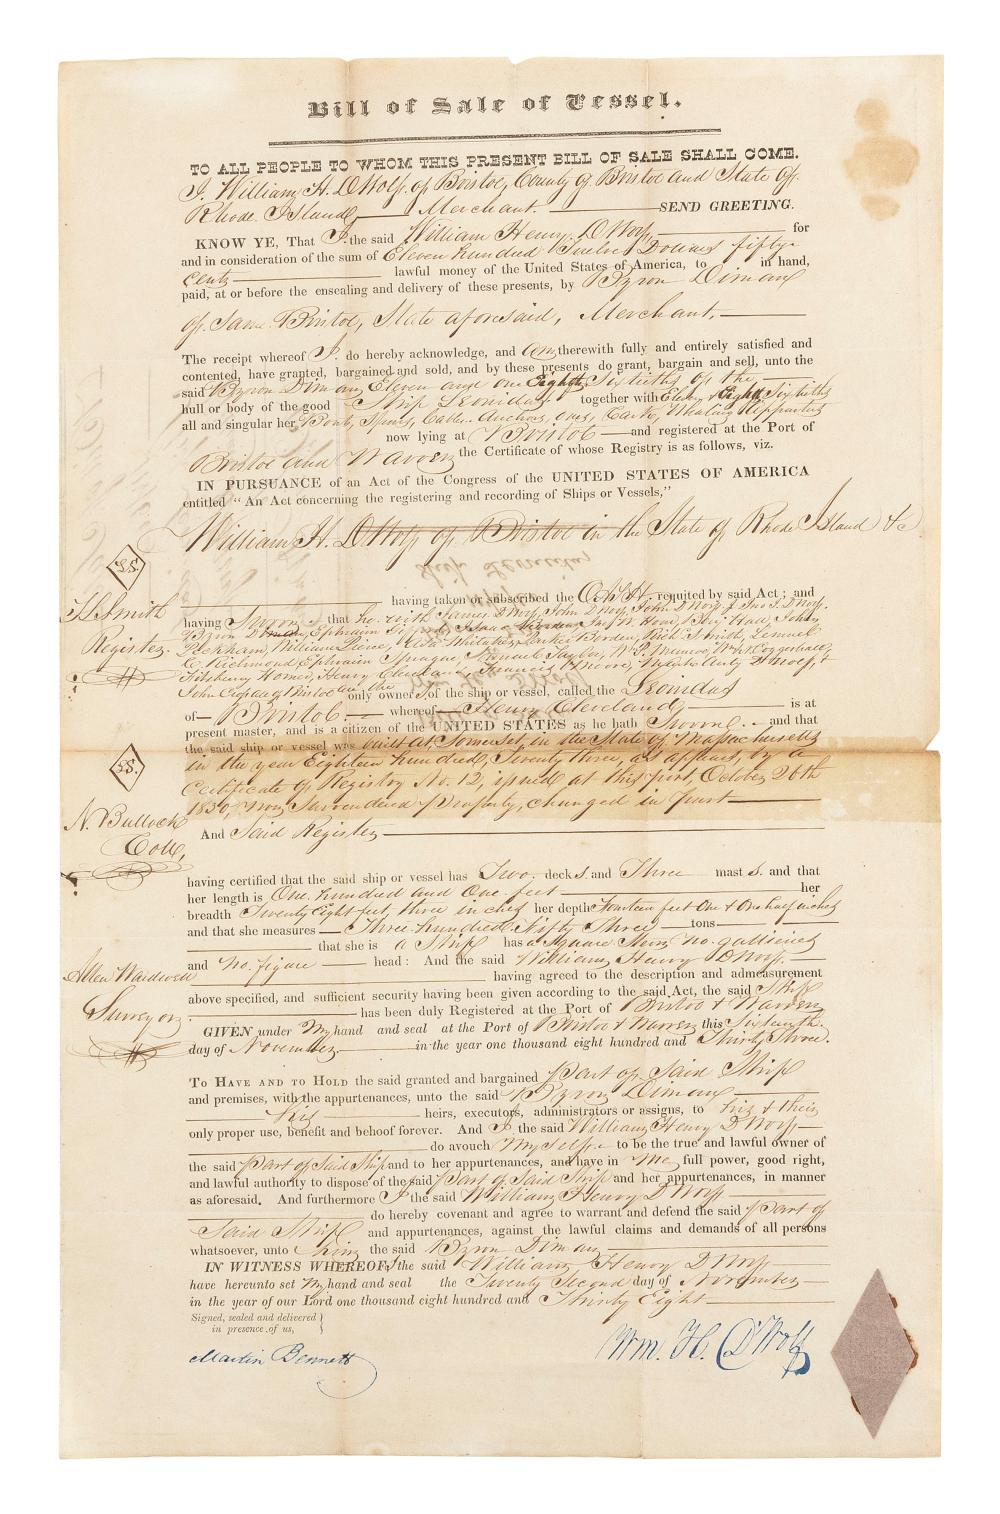 Bill of Sale of Vessel.
TO ALL PEOPLE TO WHOM THIS PRESENT BILL OF SALE SHALL COME.
I. William H. DWolf of Bristol, County of Bristol and State of
Rhode Island, Merchant. SEND GREETING.
KNOW YE, That I. the said William Henry DWolf for
and in consideration of the sum of Eleven hundred Twelve Dollars fifty
Cents lawful money of the United States of America, to in hand,
paid, at or before the ensealing and delivery of these presents, by Byron Diman
of Same Bristol, State aforesaid, Merchant,
The receipt whereof I. do hereby acknowledge, and am therewith fully and entirely satisfied and
contented, have granted, bargained and sold, and by these presents do grant, bargain and sell, unto the
said Byron Diman Eleven and one Eighth Sixtieths of the
hull or body of the good Ship Leonidas together with Eleven & Eighth Sixtieths
all and singular her Boats, Spars, Cables, Anchors, Whaling Apparatus
now lying at Bristol and registered at the Port of
Bristol and Warren the Certificate of whose Registry is as follows, viz.
IN PURSUANCE of an Act of the Congress of the UNITED STATES OF AMERICA
entitled "An Act concerning the registering and recording of Ships or Vessels,"
William H. DWolf of Bristol in the State of Rhode Island &c
L.S.
H Smith
Register
having taken or subscribed the Oath required by said Act; and
having Sworn that he with James DWolf, John DWolf, John DWolf Jr
Byron Diman, Ephraim Isaac Borden Ben Hall, John
Peckham, William Pierce, Whitaker, Parker Borden, Rich Smith, Lemuel
C. Richmond Ephraim Sprague, Taylor, Munroe, Wm H Coggeshall,
Fitzhenry Homer, Henry Cleveland, Francis Moore, DWolf, &
John of Bristol are the only owners of the ship or vessel, called the Leonidas
of Bristol whereof Henry Cleveland is at
present master, and is a citizen of the UNITED STATES as he hath Sworn and that
L.S.
the said ship or vessel was built at Somerset, in the State of Massachusetts
in the year Eighteen hundred, Twenty three, as appears, by a
Certificate of Registry No. 12, issued at this port, October 26th
1830, now Surrendered Property, changed in part
N. Bullock
Coll,
And Said Register
having certified that the said ship or vessel has Two decks and Three masts and that
her length is One hundred and One feet her
breadth Twenty Eight feet, three inches her depth Fourteen feet One & One half inches
and that she measures Three hundred Fifty Three tons
that she is a Ship has a Square Stern no galleries
Allen Wardwell
Surveyor
and no figure head: And the said William Henry DWolf
having agreed to the description and admeasurement
above specified, and sufficient security having been given according to the said Act, the said Ship
has been duly Registered at the Port of Bristol & Warren
GIVEN under My hand and seal at the Port of Bristol & Warren this Sixteenth
day of November in the year one thousand eight hundred and Thirty Three.
TO HAVE AND TO HOLD the said granted and bargained Part of Said Ship
and premises, with the appurtenances, unto the said Byron Diman
His heirs, executors, administrators or assigns, to his & their
only proper use, benefit and behoof forever. And I the said William Henry DWolf
do avouch Myself to be the true and lawful owner of
the said Part of Said Ship and to her appurtenances, and have in Me full power, good right,
and lawful authority to dispose of the said Part of Said Ship and her appurtenances, in manner
as aforesaid. And furthermore I the said William Henry DWolf
do hereby covenant and agree to warrant and defend the said Part of
Said Ship and appurtenances, against the lawful claims and demands of all persons
whatsoever, unto him the said Byron Diman
IN WITNESS WHEREOF, I the said William Henry DWolf
have hereunto set My hand and seal the Twenty Second day of November
in the year of our Lord one thousand eight hundred and Thirty Eight
Signed, sealed and delivered
in presence of us,
Martin Bennett
Wm. H. D'Wolf